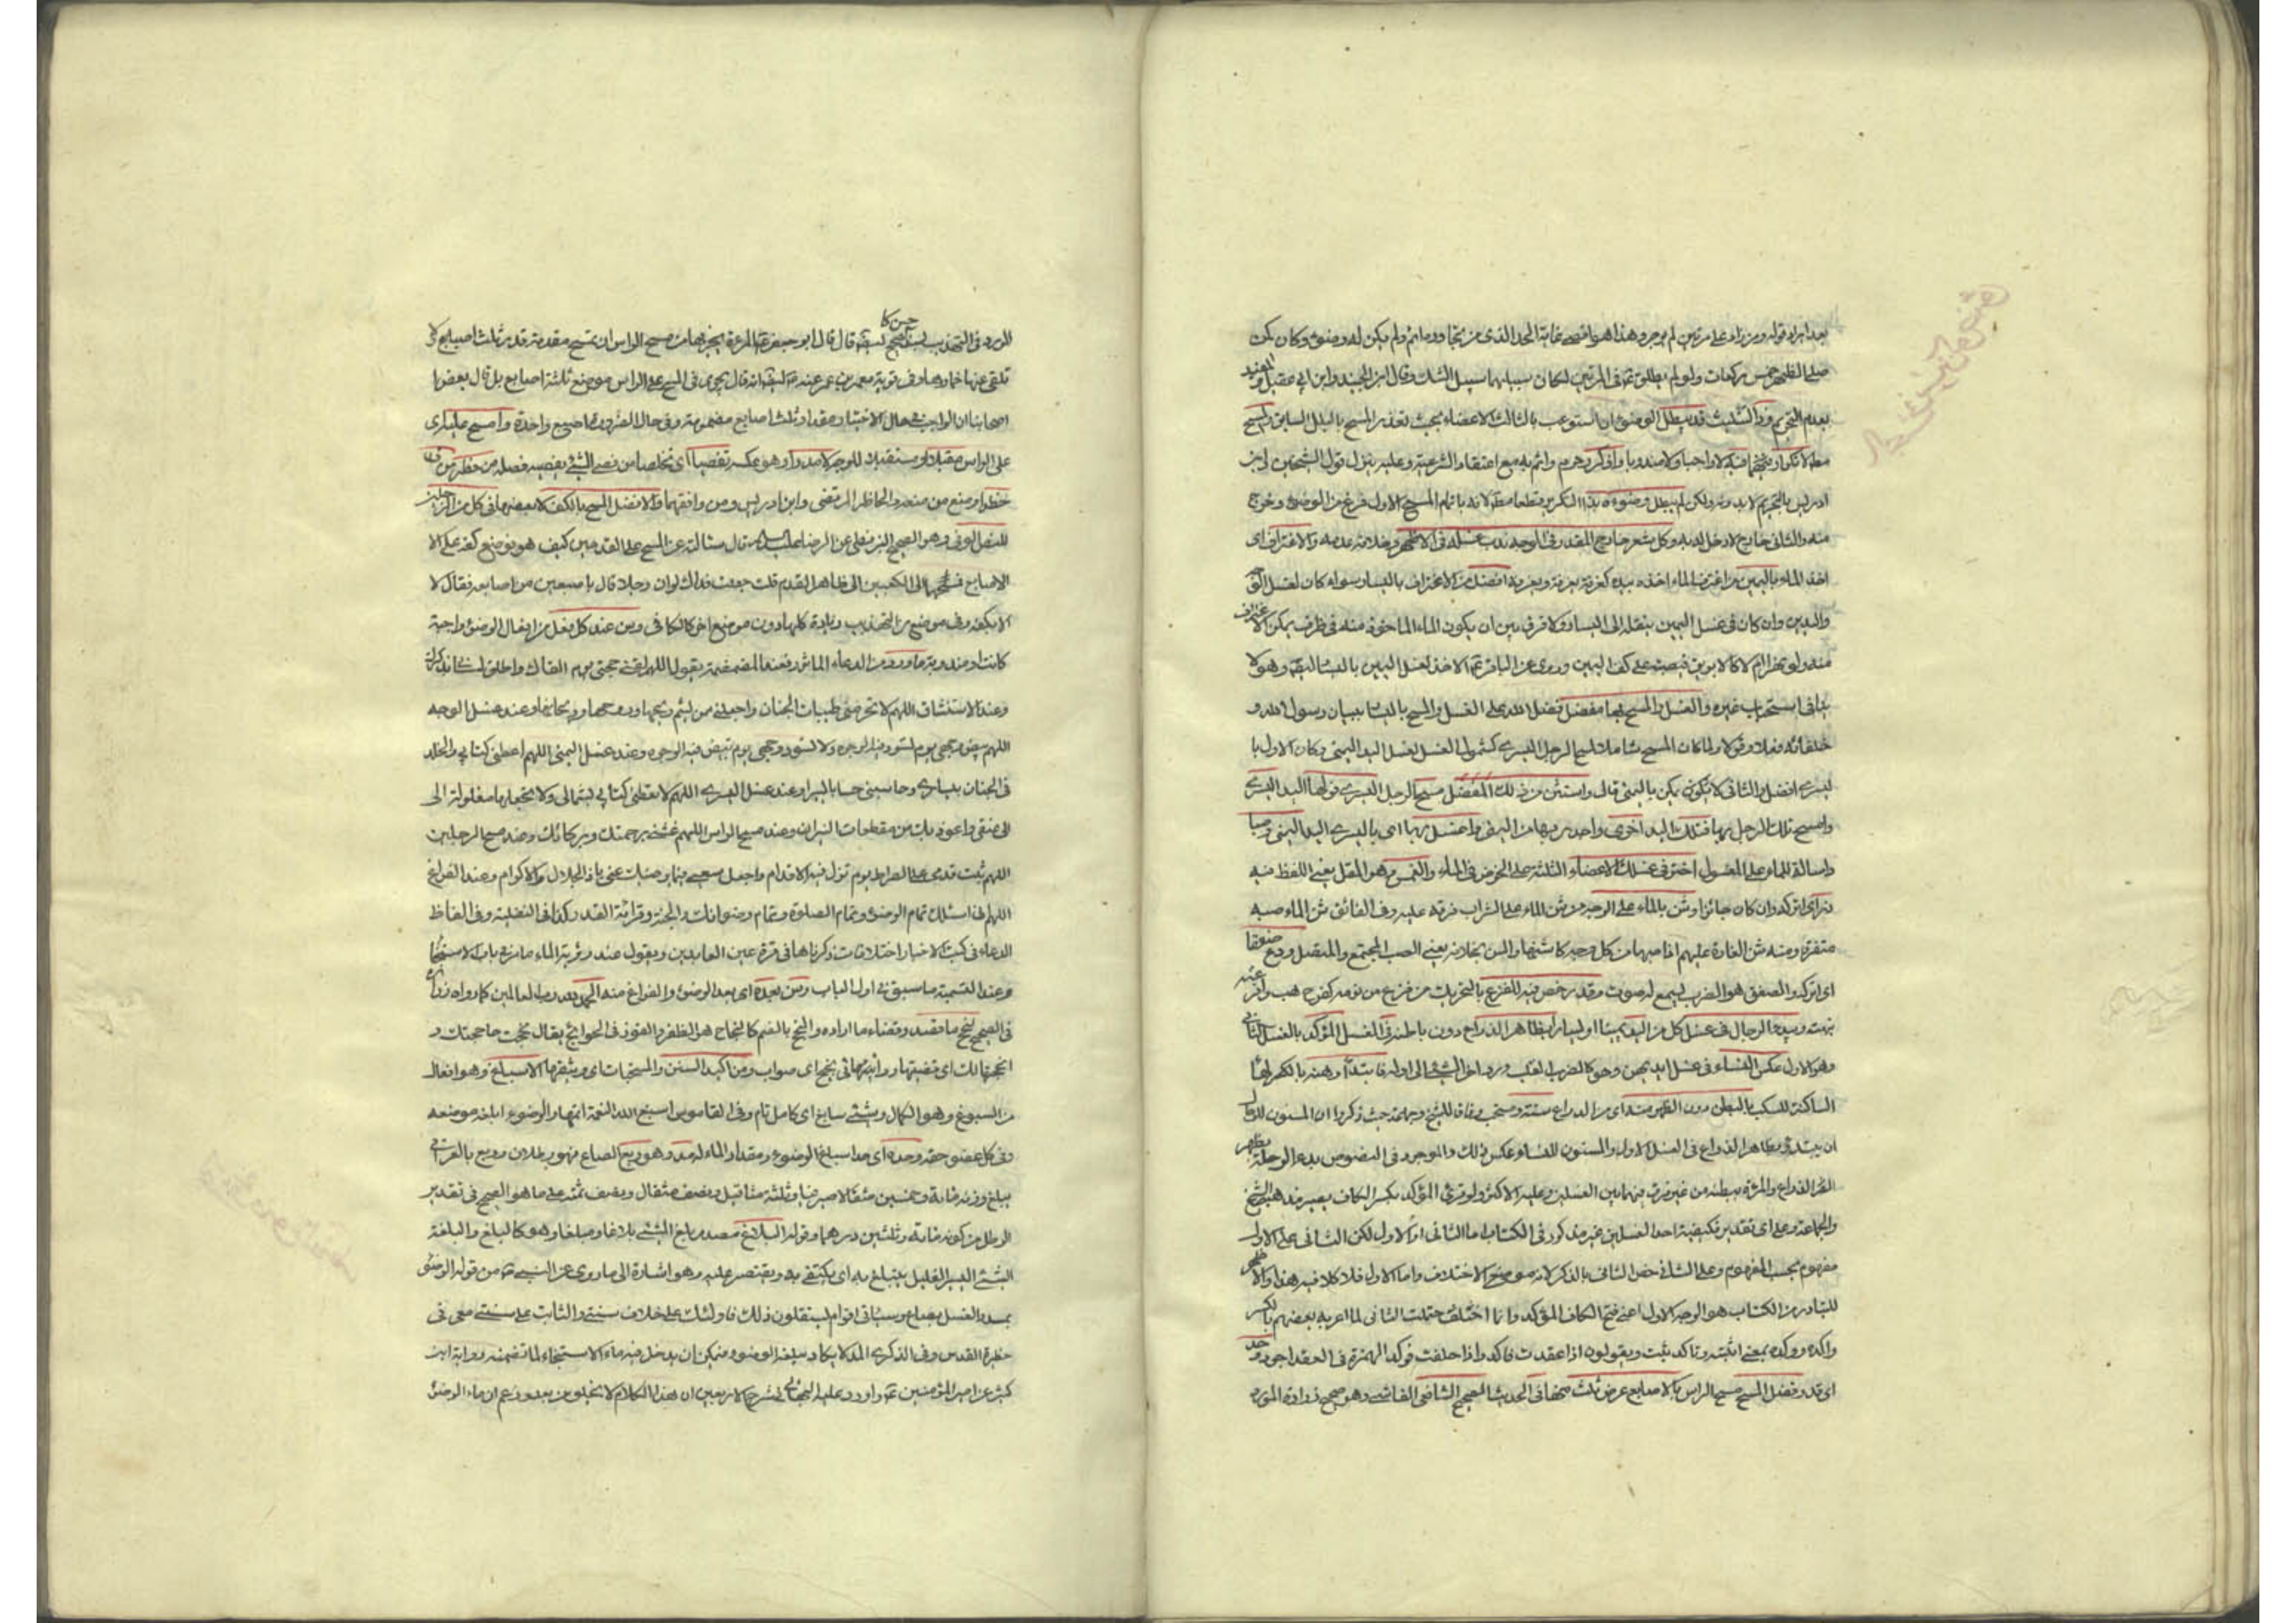 بعد ايراد قوله ومن زاد على مرتين لم يوجر وهذا هو اقصى غاية الحد الذى من تجاوزه اثم ولم يكن له وضوء وكان كمن
صلى الظهر خمس ركعات ولو لم يطلق فى المرتين لكان سبيلها سبيل الثلث وقال ابن الجنيد وابن ابى عقيل والمفيد
بعدم التحريم وذا التثليث قد يبطل الوضوء ان استوعب بالثالث الاعضاء بحيث تعذر المسح بالبلل السابق والمسح
مطلقا لا تكرار فيه لا واجبا ولا مندوبا وان كرر حرم واثم به مع اعتقاد الشرعية وعليه ينزل قول الشيخين وابن
ادريس بالتحريم لا بدونه ولكن لم يبطل وضوءه بهذا التكرير قطعا مطلقا لانه باتمام المسح الاول فرغ من الوضوء وخرج
منه والثانى خارج لا دخل له به وكل شعر خارج المقدر فى الوجه ندب غسله فى الاظهر وبخلافه عدمه والاغتراف اى
اخذ الماء باليمين من اغترف الماء اخذه بيده كغرفه يغرفه ويغرفه افضل من الاغتراف باليسار سواء كان لغسل الوجه
واليدين وان كان فى غسل اليمين ينقله الى اليسار ولا فرق بين ان يكون الماء الماخوذ منه فى ظرف يمكن الاغتراف
منه ولو بغرائم لا كالابريق فيصبه على كف اليمين وروى عن الباقر الاخذ لغسل اليمين باليسار ايضا وهو لا
ينافى استحباب غيره والغسل والمسح بها مفضل تفضل الله على الغسل والمسح باليسار ببيان رسول الله و
خلفائه فعلا وقولا ولما كان المسح شاملا لمسح الرجل اليسرى كشمول الغسل لغسل اليد اليمنى وكان الاول با
ليسرى افضل والثانى لا يكون يمكن باليمنى قال واستثن من ذلك المفضل مسح الرجل اليسرى فولها اليد اليسرى
وامسح تلك الرجل بها فتلك اليد احرى واجدر بها من اليمنى واغسل بها اى باليسرى اليد اليمنى وصبا
واسالة للماء على المغسول اختر فى غسل الاعضاء الثلثة على الخوض فى الماء والغمس وهو المقل يعنى اللفظ فيه
ذراى اتركه وان كان جائزا وشن بالماء على الوجه من شن الماء على الشراب فرقه عليه وفى الفائق شن الماء صبه
متفرقا ومنه شن الغارة عليهم اذا صبها من كل وجه كاشنها والسن بخلافه يعنى الصب المجتمع والمتصل ودع صفقا
اى اتركه والصفق هو الضرب ليسمع له صوت وقد رخص فيه للفزع بالتحريك من فزع من نومه كفرح هب وافزعته
نبهته ويبدء الرجال فى غسل كل من اليد يمينا او يسارا بظاهر الذراع دون باطنه فى الغسل المؤكد بالغسل الثانى
وهو الاول عكس النساء فى غسل ايديهن وهو كالضرب لقلب ورد اخر الشئ الى اوله فابتداء وهنه بالكسر لهاء
الساكنة للسكب بالبطن دون الظهر مبتدا اى من الذراع سنة ومستحب وفاقا للشيخ وجماعة حيث ذكروا ان المسنون للرجال
ان يبتدؤ بظاهر الذراع فى الغسل الاول والمسنون للنساء عكس ذلك والموجود فى النصوص بدء الرجل بظهر
الذراع والمرءة ببطنه من غير فرق فيهما بين الغسلين وعليه الاكثر ولو قرئ المؤكد بكسر الكاف يصير مذهب الشيخ
والجماعة وعلى اى تقدير فكيفية احد الغسلين غير مذكور فى الكتاب اما الثانى او الاول لكن الثانى على الاول
مفهوم بحسب المفهوم وعلى الثانى خص الثانى بالذكر لانه موضع الاختلاف واما الاول فلا كلام فيه هذا والاظهر
المتبادر من الكتاب هو الوجه الاول اعنى فتح الكاف المؤكد وانما اختلف حملت الثانى لما اعربه بعضهم بالكسر
واكده ووكده بمعنى اثبته وتاكد يثبت ويقولون اذا عقدت فاكد واذا حلفت فوكد الهمزة فى العقد اجود وحد
اى قدر وفضل المسح مسح الراس بالاصابع عرض ثلث صحها فى الحديث الصحيح الشافى الفاشى وهو صحيح زرارة المروى
المورد فى التهذيب بسند صحيح حسن كا قال قال ابو جعفر المرءة يجزيها من مسح الراس ان تمسح مقدمه قدر ثلث اصابع ولا
تلقى عنها خمارها وفى قوية معمر بن عمر عنه انه قال يجزى فى المسح على الراس موضع ثلثة اصابع بل قال بعض ا
اصحابنا ان الواجب فى حال الاختيار مقدار ثلث اصابع مضمومة وفى حال الضرورة اصبع واحدة وامسح عليا رى
على الراس مقبلا او مستقبلا للوجه لا مدبرا وهو عكسه تفصيا اى تخلصا من فصى الشئ يفصيه فصله من حظر من قد
حظرا ومنع من منعه والحاظر المرتضى وابن ادريس ومن وافقهما والافضل المسح بالكف لا بعضها فى كل من الرجلين
للنصل الوفى وهو الصحيح البزنطى عن الرضا عليه السلام قال سئالته عن المسح على القدمين كيف هو فوضع كفه على الا
الاصابع فمسحها الى الكعبين الى ظاهر القدم قلت جعلت فداك لو ان رجلا قال باصبعين من اصابعه فقال لا
الا بكفه وفى موضع من التهذيب زيادة كلها دون موضع اخر كالكافى ومن عند كل فعل من افعال الوضوء واجبة
كانت او مندوبة ماورد من الدعاء الماثور فعند المضمضة يقول اللهم لقنى حجتى يوم القاك واطلق لسانى بذكرك
وعند الاستنشاق اللهم لا تحرمنى طيبات الجنان واجعلنى ممن يشم ريحها وروحها وريحانها وعند غسل الوجه
اللهم بيض وجهى يوم تسود فيه الوجوه ولا تسود وجهى يوم تبيض فيه الوجوه وعند غسل اليمنى اللهم اعطنى كتابى والخلد
فى الجنان بيسارى وحاسبنى حسابا يسيرا وعند غسل اليسرى اللهم لا تعطنى كتابى بشمالى ولا تجعلها مغلولة الى
الى عنقى واعوذ بك من مقطعات النيران وعند مسح الراس اللهم غشنى برحمتك وبركاتك وعند مسح الرجلين
اللهم ثبت قدمى على الصراط يوم تزل فيه الاقدام واجعل سعيى فيما يرضيك عنى ياذا الجلال والاكرام وعند الفراغ
اللهم انى اسئلك تمام الوضوء وتمام الصلوة وتمام رضوانك والجنة وقرائة القدر وكذا فى النفلية وفى الفاظ
الدعاء فى كتب الاخبار اختلافات ذكرناها فى قرة عين العابدين ويقول عند رؤية الماء ما مر فى باب الاستنجاء
وعند التسمية ما سبق فى اول الباب ومن بعده اى بعد الوضوء والفراغ منه الحمد لله رب العالمين كما رواه زرارة
فى الصحيح لنجح ما قصد وقضاء ما اراده والنجح بالضم كالنجاح هو الظفر والفوز فى الحوائج يقال نجحت حاجتك و
انجحتها لك اى قضيتها وراى نجيح اى صواب ومن اكيد السنن والمستحبات اى وثيقها الاسباغ وهو افعال
من السبوغ وهو الكمال وشئ سابغ اى كامل تام وفى القاموس اسبغ الله النعمة اتمها والوضوء ابلغه موضعه
وفى كل عضو حقه وحده اى حد اسباغ الوضوء ومقدار الماء له مد وهو ربع الصاع فهو رطلان وربع بالعراقى
يبلغ وزنه مائة وخمسين مثقالا صيرفيا وثلثة مثاقيل ونصف مثقال ونصف ثمنه على ما هو الصحيح فى تقدير
الرطل من كونه مائة وثلثين درهما وقوله البلاغ مصدر بلغ الشئ بلاغا ومبلغا وهو كالبلغ والبلغة
الشئ اليسير القليل يتبلغ به اى يكتفى به ويقتصر عليه وهو اشارة الى ما روى عن النبى من قوله الوضوء
بمد والغسل بصاع وسيأتى اقوام يستقلون ذلك فاولئك على خلاف سنتى والثابت على سنتى معى فى
حظيرة القدس وفى الذكرى المد لا يكاد يبلغه الوضوء ويمكن ان يدخل فيه ماء الاستنجاء لما تضمنه رواية ابن
كثير عن امير المؤمنين واورد عليه البهائى فى شرح الاربعين ان هذا الكلام لا يخلو من بعد وزعم ان ماء الوضوء